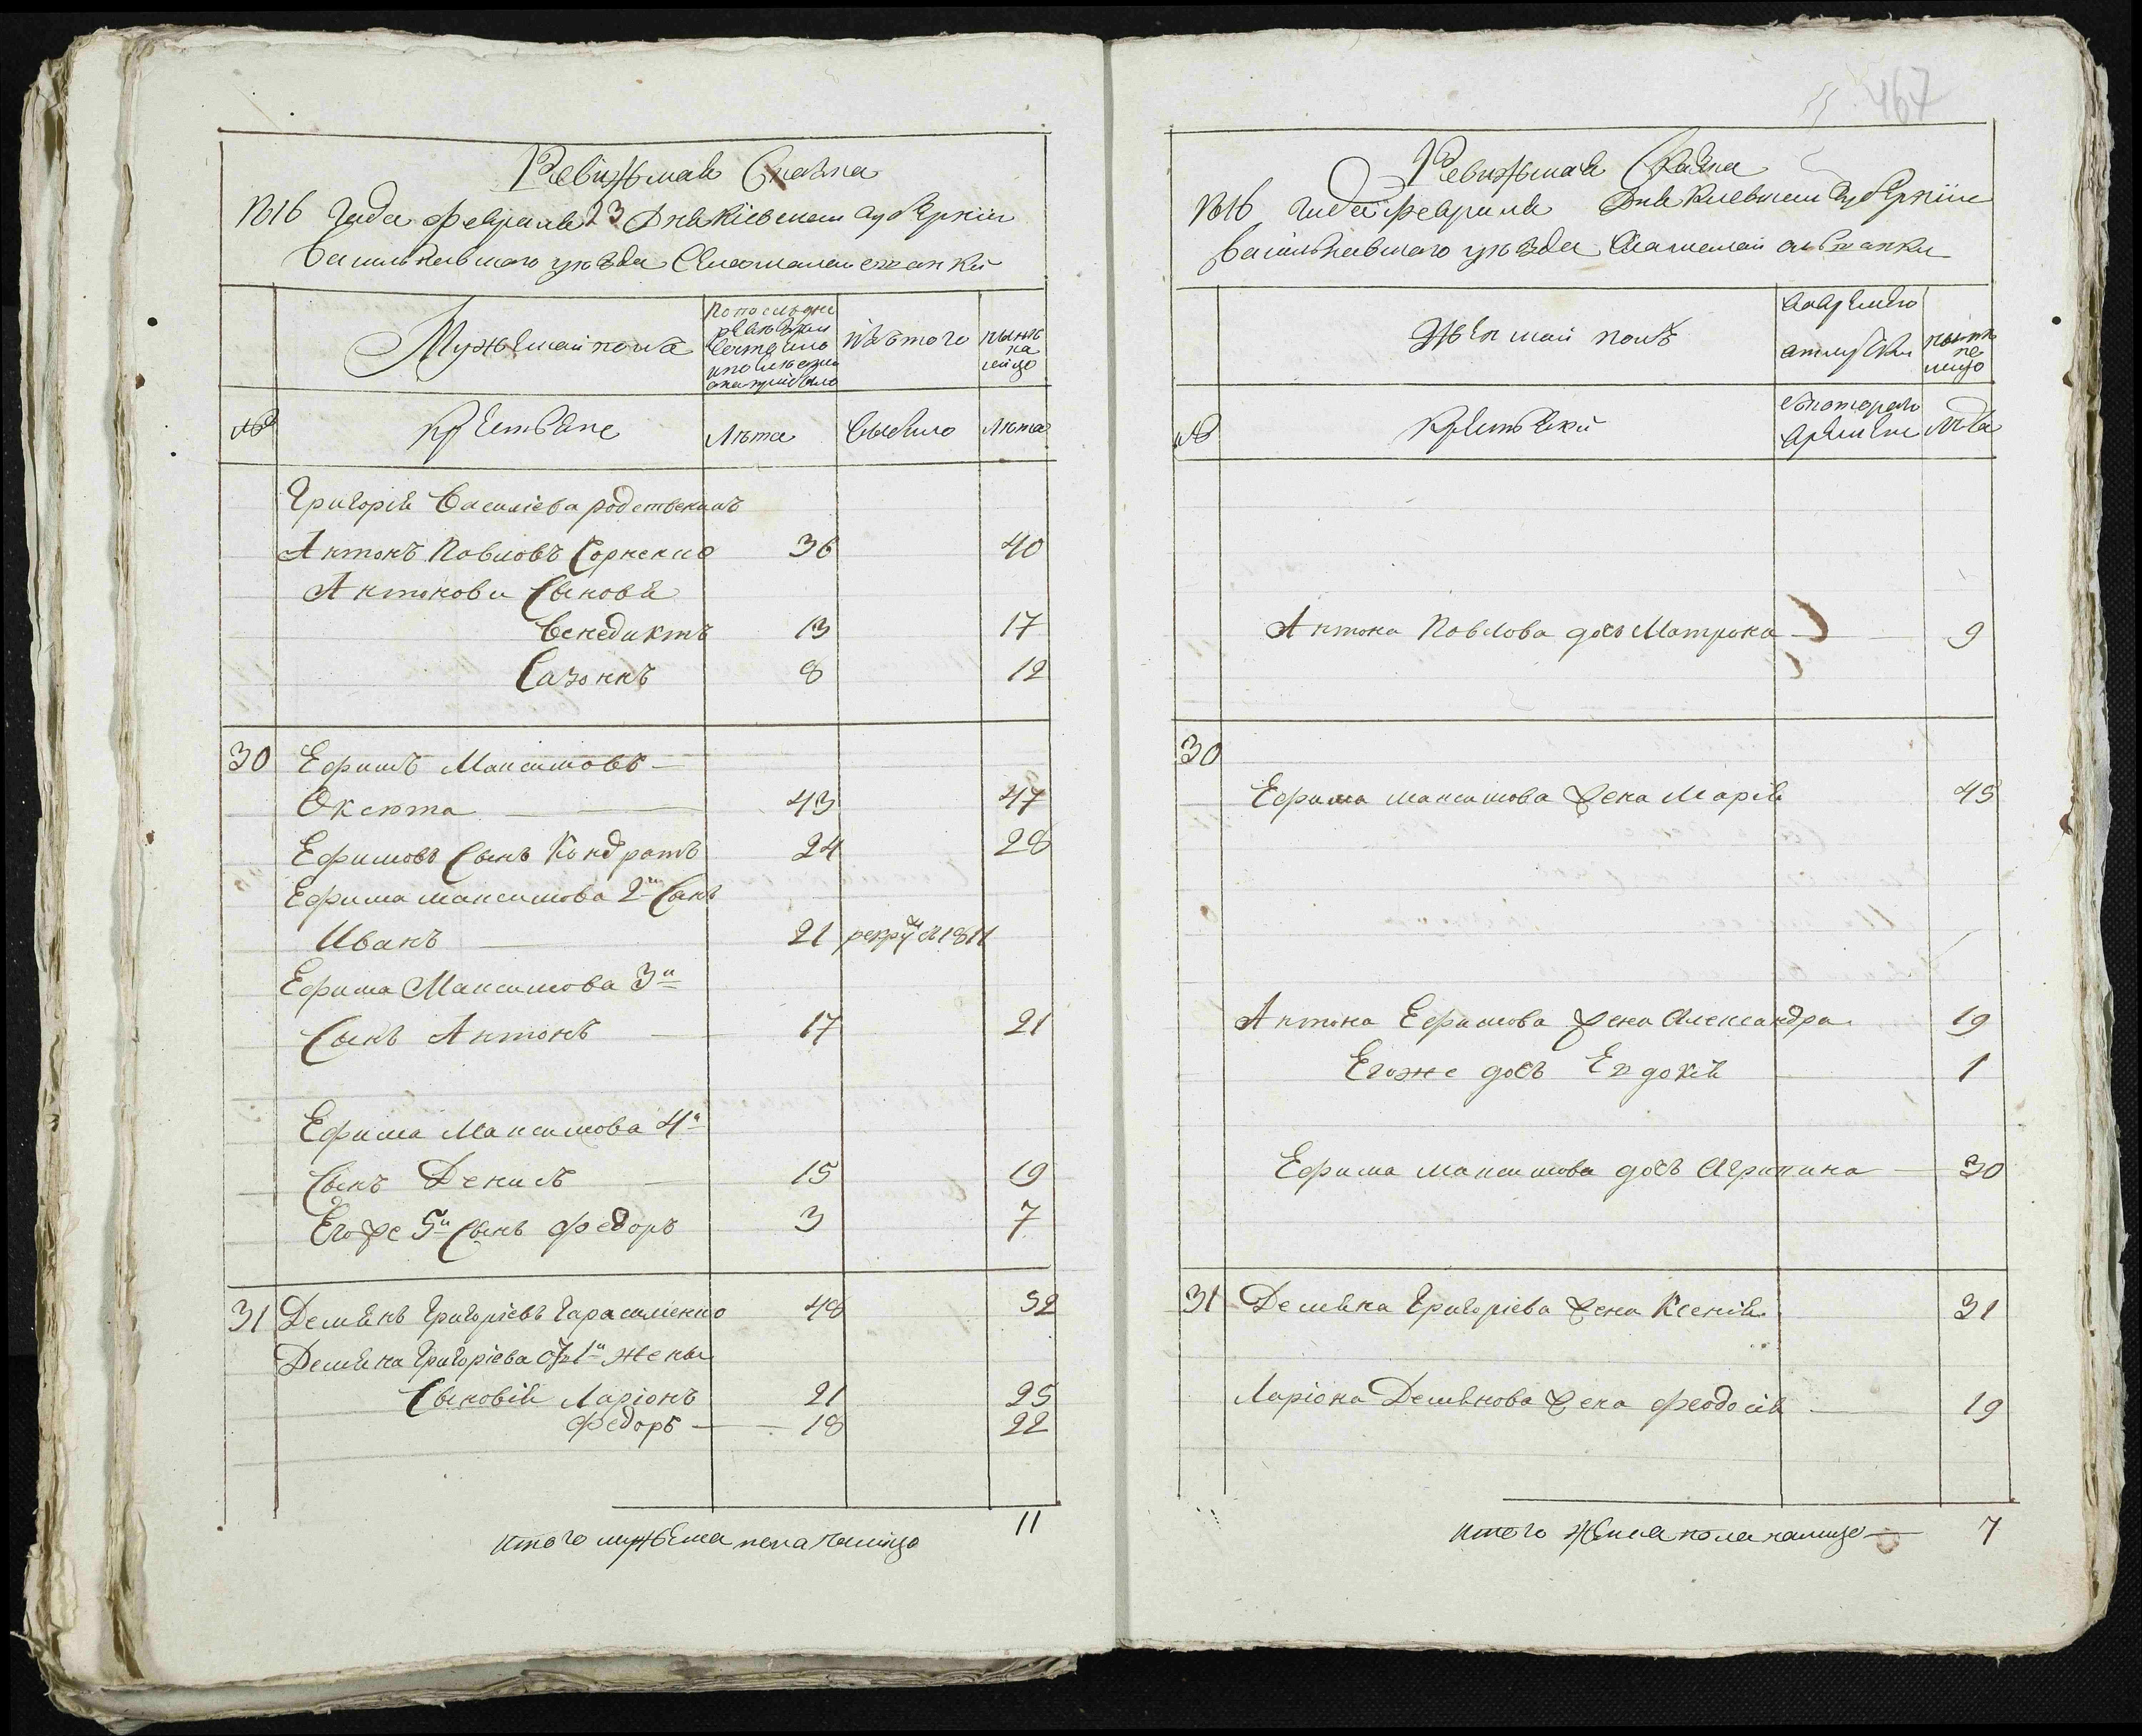 Ревижская Сказка
1816 Года Февраля 23 Дня Кіевской Губерніи
Васильковского уезда
Мужескаго пола
По последней ревизіи состояло и после оной прибыло
Изъ того
Ныне на лицо
№
Крестьяне
Лѣта
выбыло
Лѣта
Григорія Василіева родственикъ
Антонъ Павловъ Сорненко
36
40
Антонови Сыновя
Венедиктъ
13
17
Сазонъ
8
12
30
Ефимъ Максимовъ
Оксюта
43
47
Ефимовъ Сынъ Кондратъ
24
28
Ефима Максимова 2й Сынъ
Иванъ
21
1811
Ефима Максимова 3й
Сынъ Антонъ
17
21
Ефима Максимова 4й
Сынъ Денисъ
15
19
Егоже 5й Сынъ Федоръ
3
7
31
Демянъ Григоріевъ Гарасименко
48
52
Демяна Григоріева отъ 1й жены
Сыновія Ларіонъ
21
25
Федоръ
18
22
Итого мужеска пола налицо
11
467
Ревижская Сказка
1816 Года Февраля Дня Киевской Губерніи
Васильковского уезда
Женской полъ
Во временной отлучке
Ныне на лицо
№
Крестьянки
Съ котораго времени
Лѣта
Антона Павлова дочь Матрона
9
30
Ефима Максимова жена Марія
45
Антона Ефимова жена Александра
19
Егоже дочь Евдокія
1
Ефима Максимова дочь Агрипина
30
31
Демяна Григоріева жена Ксенія
31
Ларіона Демянова жена Феодосія
19
Итого женска пола налицо
7